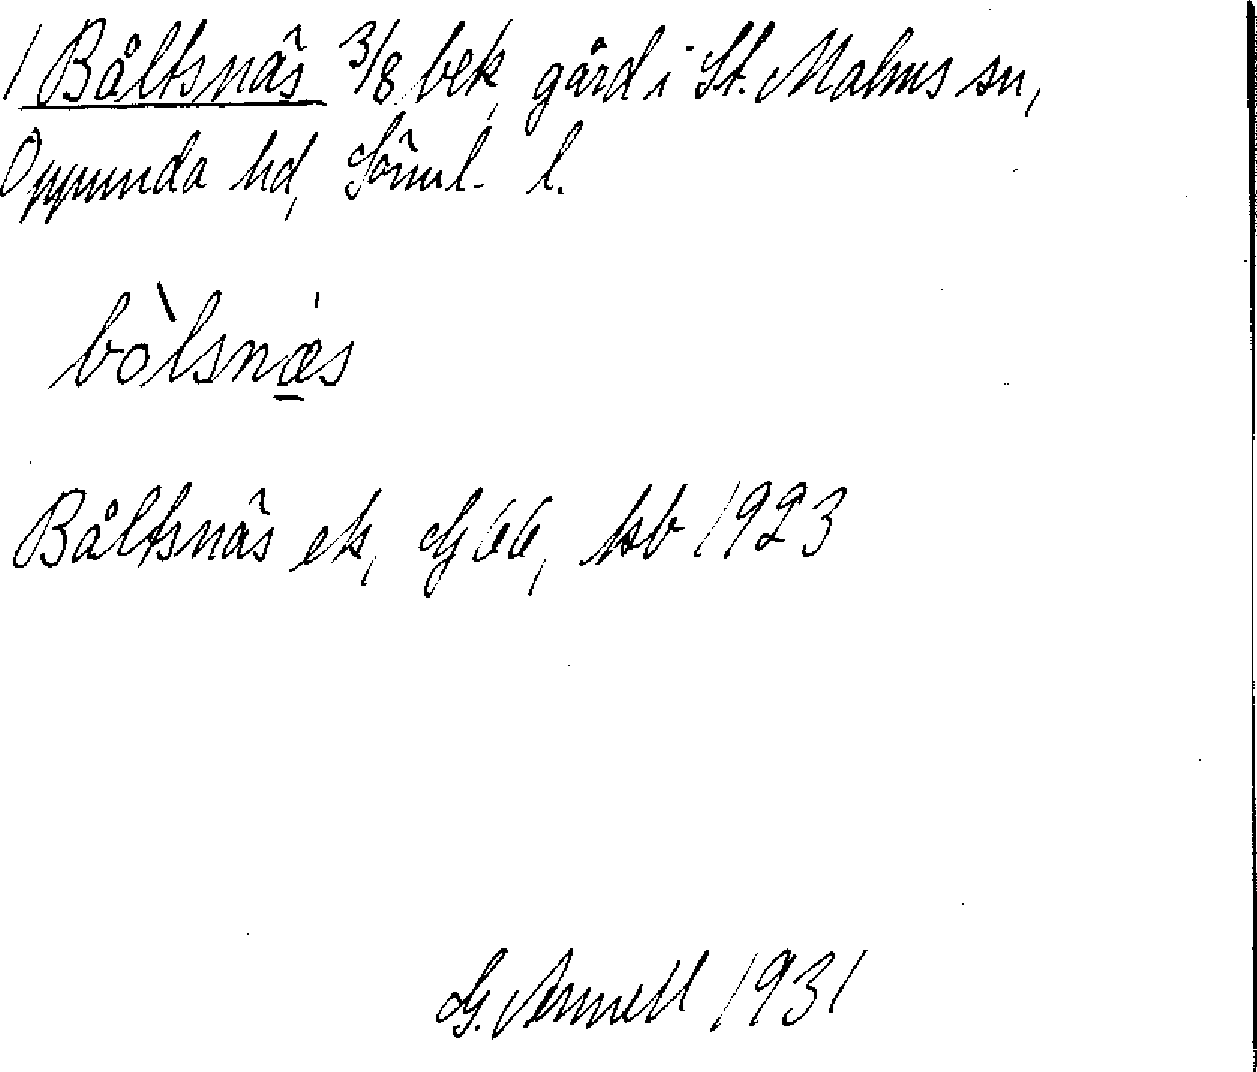 1 Båltsnäs 3/8 bek, gård i St. Malms sn,
Oppunda hd, Söml. l.
bòlsnæ̱s
Båltsnäs ek, G 66, kb 1923
G. 1931